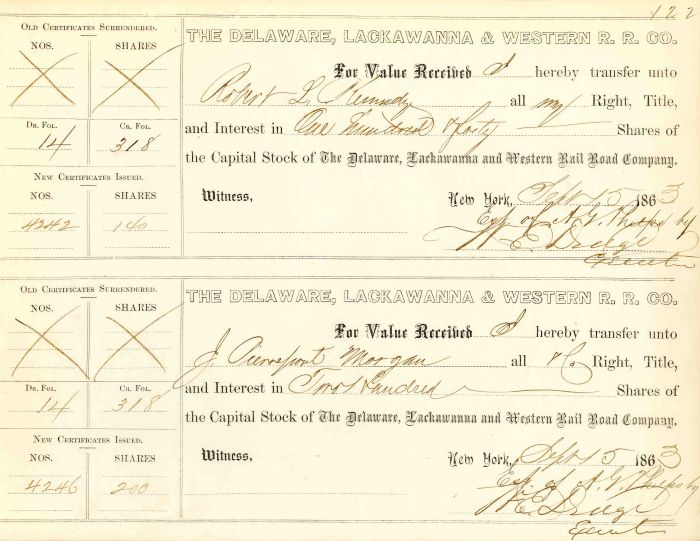 122
OLD CERTIFICATES SURRENDERED.
NOS. SHARES
DR. FOL. CR. FOL.
14 318
NEW CERTIFICATES ISSUED.
NOS. SHARES
4242 140
THE DELAWARE, LACKAWANNA & WESTERN R. R. CO.
For Value Received I hereby transfer unto
Robert L. Kennedy all my Right, Title,
and Interest in One hundred & forty Shares of
the Capital Stock of The Delaware, Lackawanna and Western Rail Road Company.
Witness, New York, Sept 15 1863
Exr. of A. G. Phelps by
W. E. Dodge
Executor
OLD CERTIFICATES SURRENDERED.
NOS. SHARES
DR. FOL. CR. FOL.
14 318
NEW CERTIFICATES ISSUED.
NOS. SHARES
4246 200
THE DELAWARE, LACKAWANNA & WESTERN R. R. CO.
For Value Received I hereby transfer unto
J. Pierrepont Morgan all & Co Right, Title,
and Interest in Two hundred Shares of
the Capital Stock of The Delaware, Lackawanna and Western Rail Road Company.
Witness, New York, Sept 15 1863
Exr. of A. G. Phelps by
W. E. Dodge
Executor